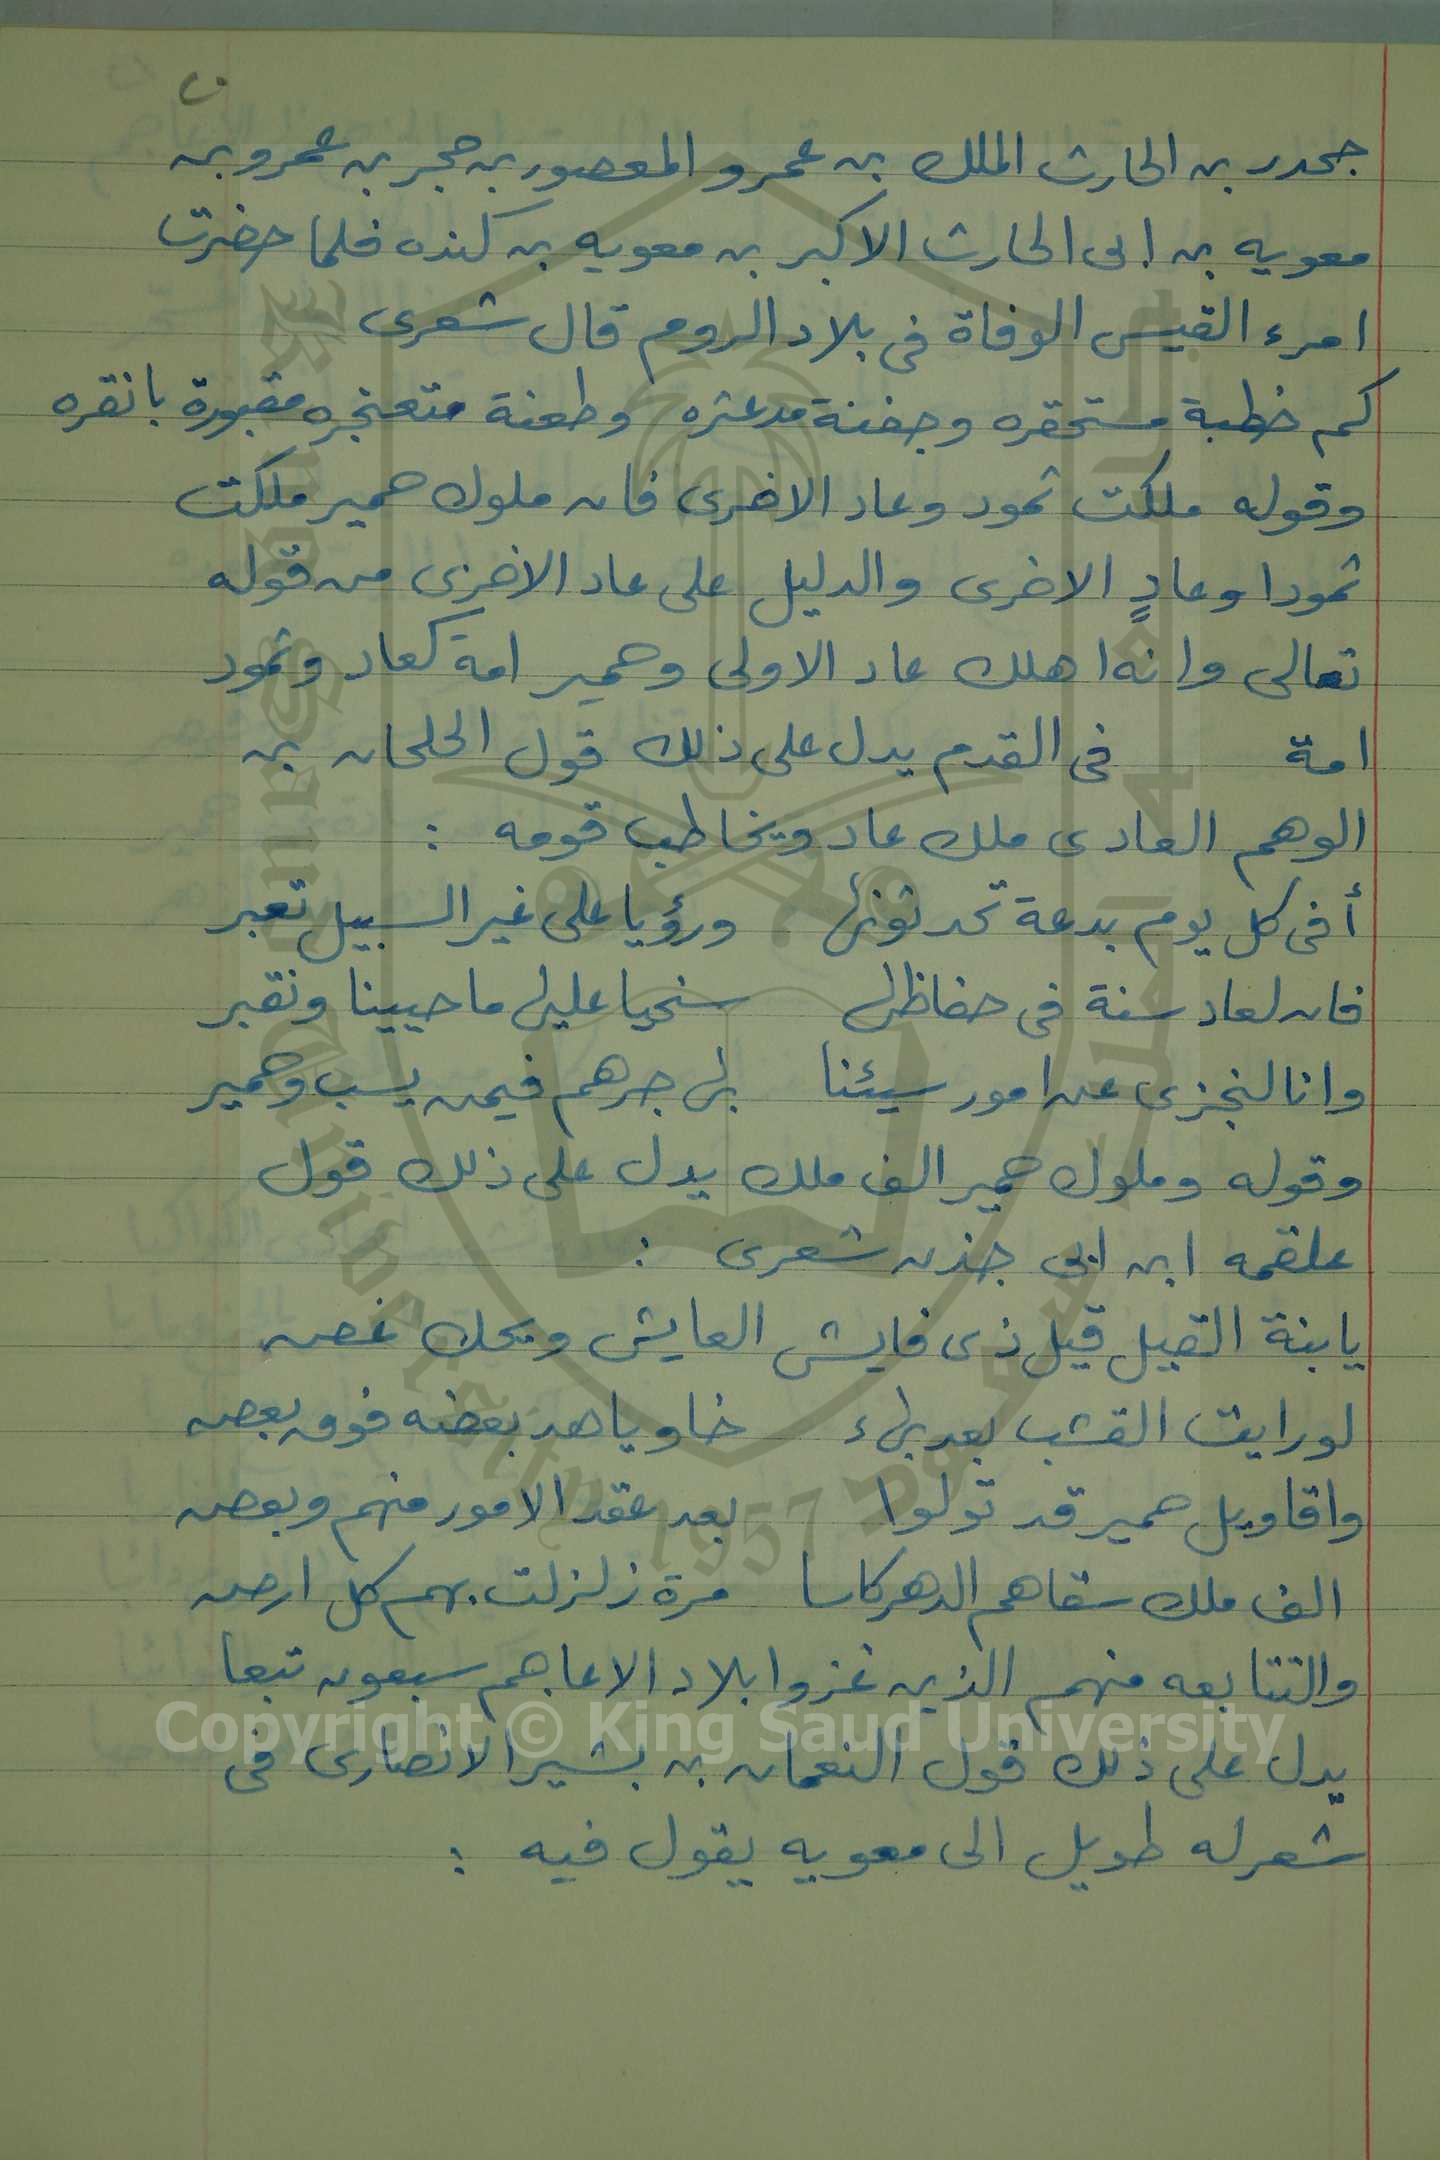 ن
جحدر بن الحارث الملك بن عمرو المعصور بن حجر بن عمرو بن
معويه بن ابى الحارث الاكبر بن معويه بن كنده فلما حضرت
امرء القيس الوفاة فى بلاد الروم قال شعرى
كم خطبة مستحقره وجفنة مدعثره وطعنة متعنجره مقبورة بانقره
وقوله ملكت ثمود وعاد الاخرى فان ملوك حمير ملكت
ثمودا وعادٍ الاخرى والدليل على عاد الاخرى من قوله
تعالى وانه اهلك عاد الاولى وحمير امة كعاد وثمود
امة فى القدم يدل على ذلك قول الخلجان بن
الوهم العادى ملك عاد ويخاطب قومه :
أفى كل يوم بدعة تحدثونها ورؤيا على غير السبيل تعبر
فان لعاد سنة فى حفاظها سنحيا عليها ما حيينا ونقبر
وانا لنجزى عن امور سيئنا بها جرهم فيمن يسب وحمير
وقوله وملوك حمير الف ملك يدل على ذلك قول
علقمه ابن ابى جذن شعرى :
يا بنة القيل قيل ذى فايش العايش ويحك غض
لو رايت القشب بعد بهاء خاويا هد بعضه فوق بعض
واقاويل حمير قد تولوا بعد عقد الامور منهم وبعض
الف ملك سقاهم الدهر كاسا مرة زلزلت بهم كل ارض
والتتابعه منهم الذين غزوا بلاد الاعاجم سبعون تبعا
يدل على ذلك قول النعمان بن بشير الانصارى فى
شعر له طويل الى معويه يقول فيه :
Copyright © King Saud University
King Saud University 1957